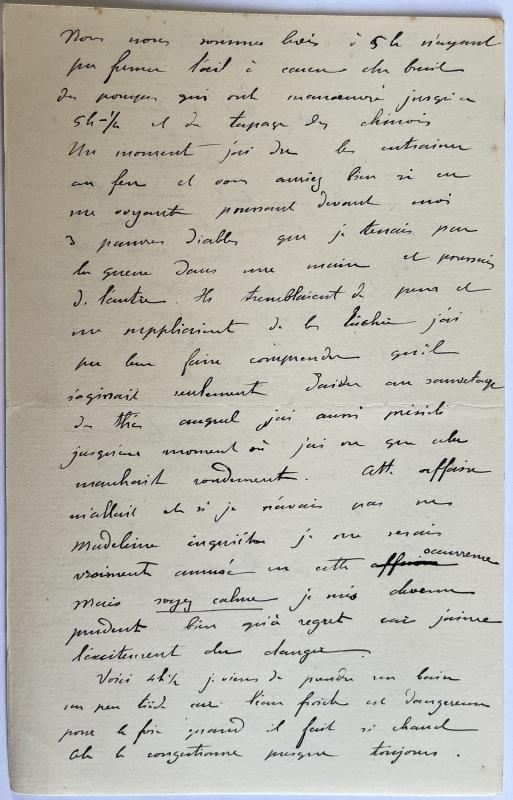 Nous nous sommes levés à 5h n'ayant
pu fermer l'œil à cause du bruit
des pompes qui ont manœuvré jusqu'à
5h-½ et du tapage des chinois
Un moment j'ai dû les entrainer
au feu et vous auriez bien ri en
me voyant poussant devant moi
3 pauvres diables que je tenais par
la queue dans une main et poussais
de l'autre. Ils tremblaient de peur et
me suppliaient de les lâcher j'ai
pu leur faire comprendre qu'il
s'agissait seulement d'aider au sauvetage
du thé auquel j'ai aussi présidé
jusqu'au moment où j'ai vu que cela
marchait rondement. Cette affaire
m'allait et si je n'avais pas vu
Madeleine inquiète je me serais
vraiment amusé en cette occurrence
mais soyez calme je suis devenu
prudent bien qu'à regret car j'aime
l'excitement du danger.
Voici 4h½ je viens de prendre un bain
un peu tiède car l'eau froide est dangereuse
pour le foie quand il fait si chaud
Cela le congestionne presque toujours.